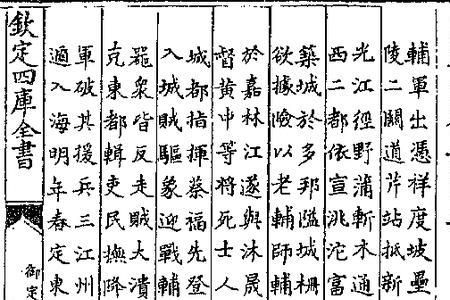 輔軍出憑祥度坡壘
陵二關道芹站抵新
光江經野蒲斬木通
西二都依宣洮沱富
築城於多邦隘城柵
欲據險以老輔師輔
於嘉林江遂與沐晟
督黃中等將死士人
城都指揮蔡福先登
入城賊驅象迎戰輔
罷衆皆反走賊大潰
克東都輯吏民撫降
軍破其援兵三江州
適入海明年春定東
欽定四庫全書
御定